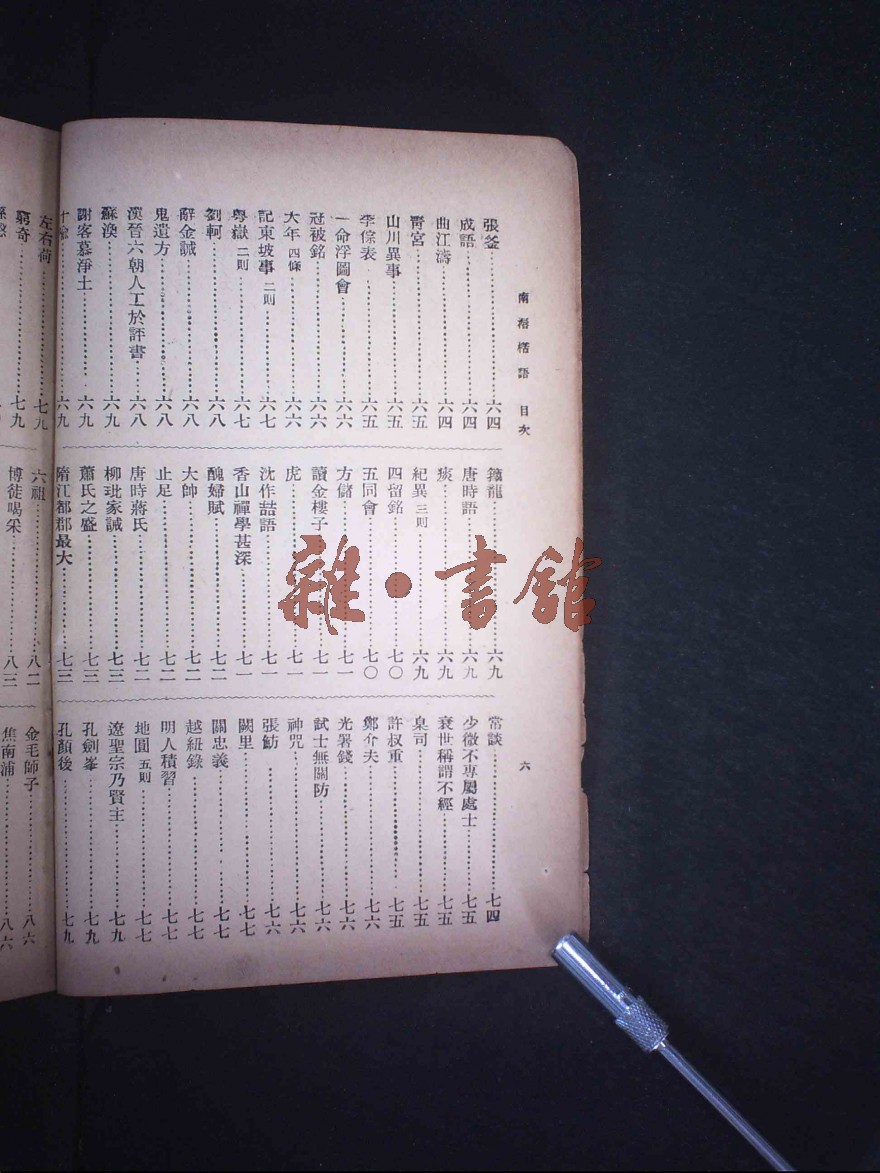 南漘楛語 目次
六
張釜……六四
成語……六四
曲江濤……六四
胷宮……六五
山川異事……六五
李倧表……六五
一命浮圖會……六六
冠被銘……六六
大年 四條……六六
記東坡事 二則……六七
粤嶽 二則……六七
劉軻……六八
辭金誠……六八
鬼遺方……六八
漢晉六朝人工於評書……六八
蘇渙……六九
謝客慕淨土……六九
六九
籜龍……六九
唐時語……六九
痰……六九
紀異 三則……六九
四留銘……七〇
五同會……七〇
方儲……七一
讀金樓子……七一
虎……七一
沈作喆語……七一
香山禪學甚深……七一
醜婦賦……七二
大帥……七二
止足……七二
唐時蔣氏……七二
柳玭家誡……七三
蕭氏之盛……七三
隋江都郡最大……七三
常談……七四
少微不專屬處士……七五
衰世稱謂不經……七五
臬司……七五
許叔重……七五
鄭介夫……七六
光署錢……七六
試士無關防……七六
神咒……七六
張魴……七六
闕里……七七
關忠義……七七
越紐錄……七七
明人積習……七七
地圓 五則……七七
遼聖宗乃賢主……七九
孔劍峯……七九
孔顏後……七九
左右荷……七九
窮奇……七九
六祖……八二
博徒喝采……八三
金毛師子……八六
焦南浦……八六
雜·書館